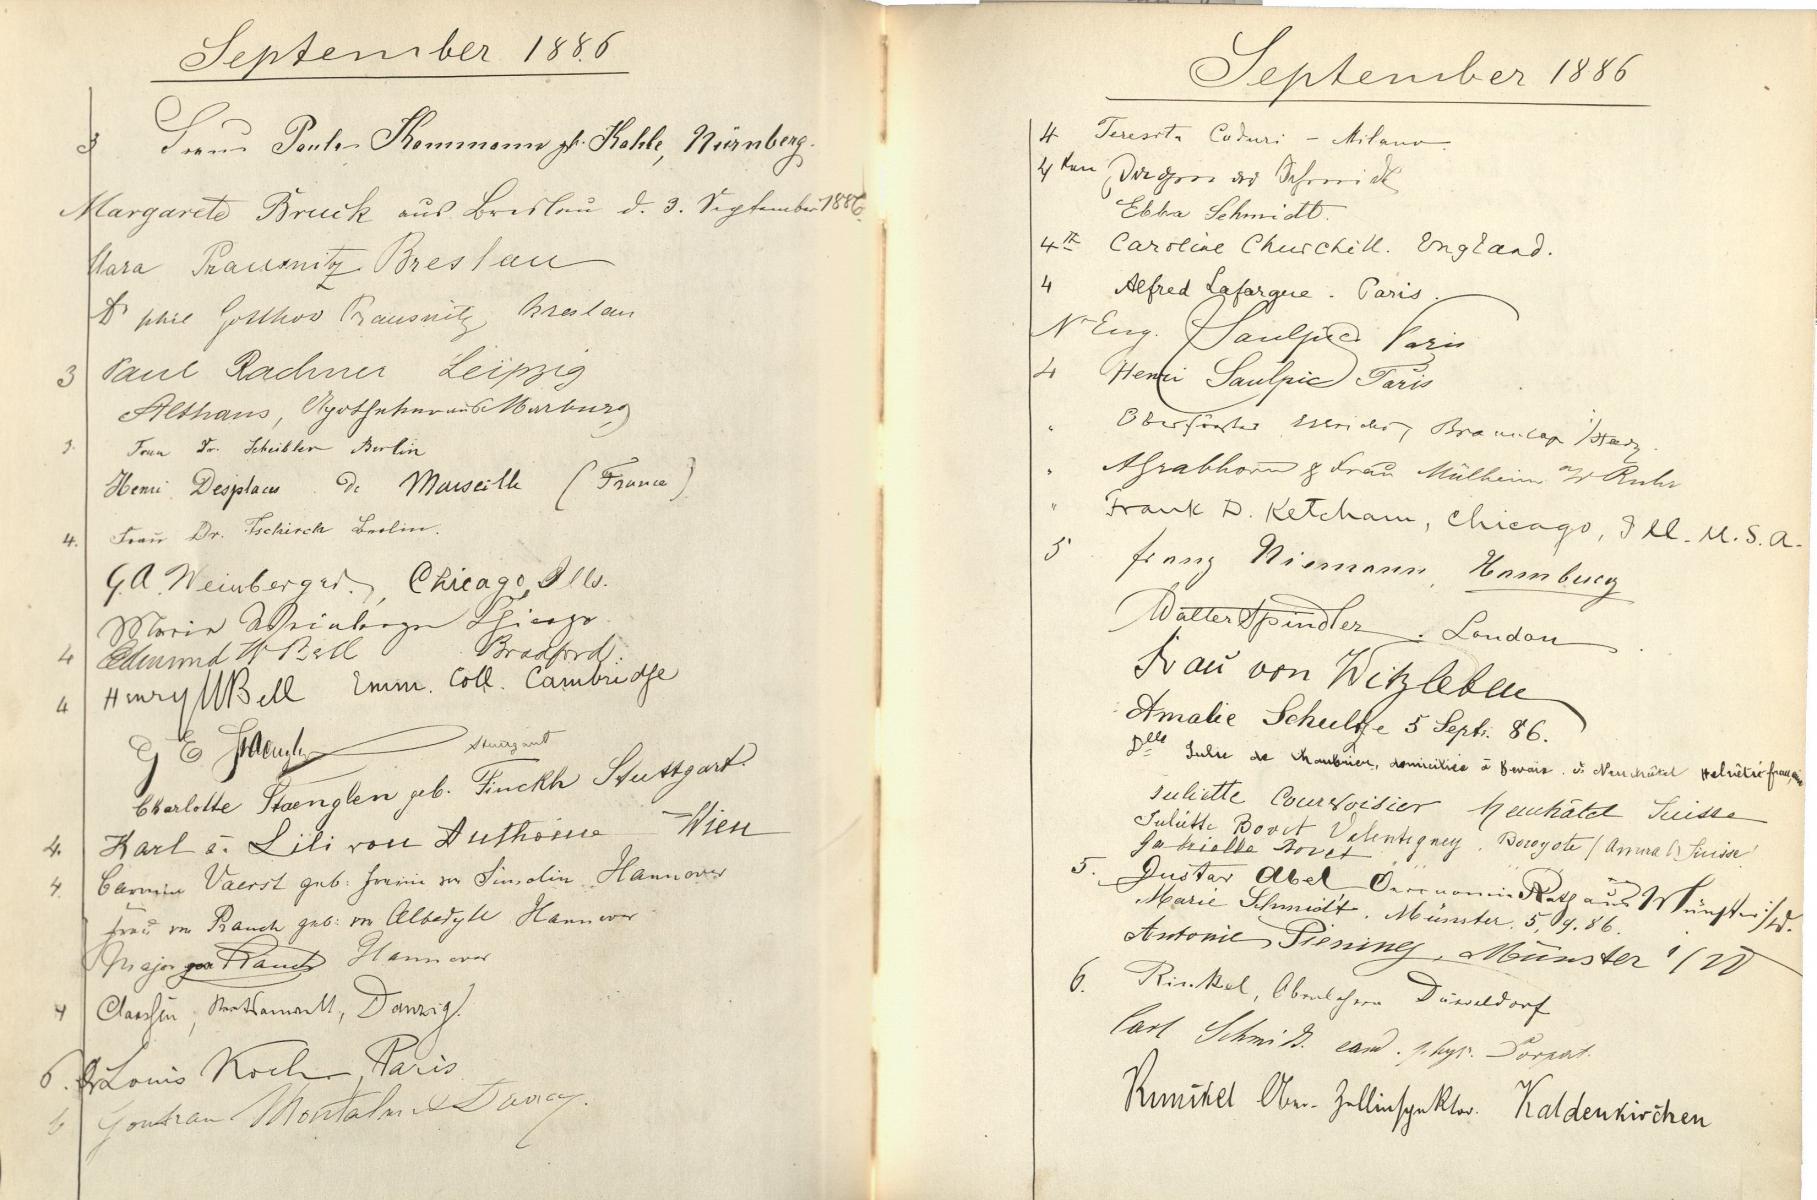 September 1886
3 Frau Paula Kommann gb. Kohle, Nürnberg.
Margarete Bruck aus Breslau d. 3. September 1886.
Clara Prausnitz Breslau
Dr phil Prausnitz Breslau
3 Paul Rachner Leipzig
Althaus, Apotheker aus Marburg
3. Frau Dr. Scheibler Berlin
Henri Desplaces de Marseille (France)
4. Frau Dr. Tschirch Berlin.
G.A. Weinberger, Chicago, Ills.
Maria Weinberger Chicago.
4 Edmund W Bell Bradford.
4 Henry W Bell Emm. Coll. Cambridge
G E Staenglen Stuttgart
Charlotte Staenglen geb. Finckh Stuttgart.
4. Karl u. Lili von Anthoine Wien
4. Vaerst geb: Hannover
Frau von Rauch geb: von Albedyll Hannover
Major von Rauch Hannover
4 Claassen, Rechtsanwalt, Danzig.
6. Dr Louis Koch, Paris
6 Gontran
September 1886
4 Teresita Coduri – Milano.
4 Schmidt
Ebba Schmidt.
4th Caroline Churchill. England.
4 Alfred Lafargue. Paris.
Eug. Saulpic Paris
4 Henri Saulpic Paris
" Oberförster Braunlage i/Harz.
" A Grabhorn & Frau Mülheim a/d Ruhr
" Frank D. Ketcham, Chicago, Ill. U.S.A.
5 Franz Niemann, Hamburg
Walter Spindler. London
Frau von Witzleben
Amalie Schultze 5 Sept. 86.
Dlle Julie de domiciliée à Bevaix. Neuchâtel
Juliette Courvoisier Neuchâtel Suisse
Juliette Bovet Valentigney.
Gabrielle Bovet
5. Gustav Abel Oeconomie Rath aus Münster i/W.
Marie Schmidt. Münster. 5. 9. 86.
Antonie Piening, Münster i/W
6. Rinkel, Oberlehrer Düsseldorf
Carl Schmidt. cand. phys. Dorpat.
Kunckel Ober-Zollinspektor. Kaldenkirchen